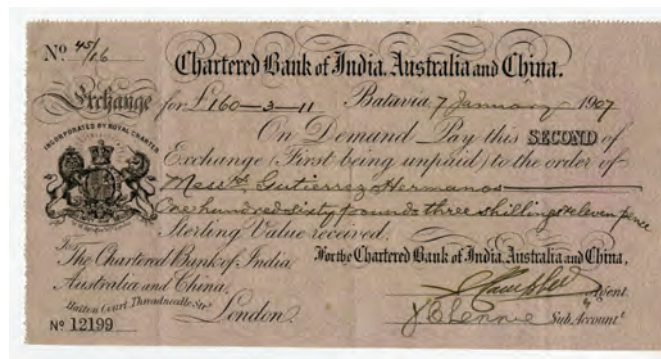 No 45/16
Chartered Bank of India, Australia and China.
Exchange for £160-3-11 Batavia 7 January 1907
On Demand Pay this SECOND of
Exchange (First being unpaid) to the order of
Messrs Gutierrez Hermanos
One hundred sixty pounds three shillings & eleven pence
Sterling Value received.
INCORPORATED BY ROYAL CHARTER
To The Chartered Bank of India,
Australia and China,
Hatton Court Threadneedle Str.
London.
No 12199
For the Chartered Bank of India, Australia and China,
Agent.
Sub. Accountt